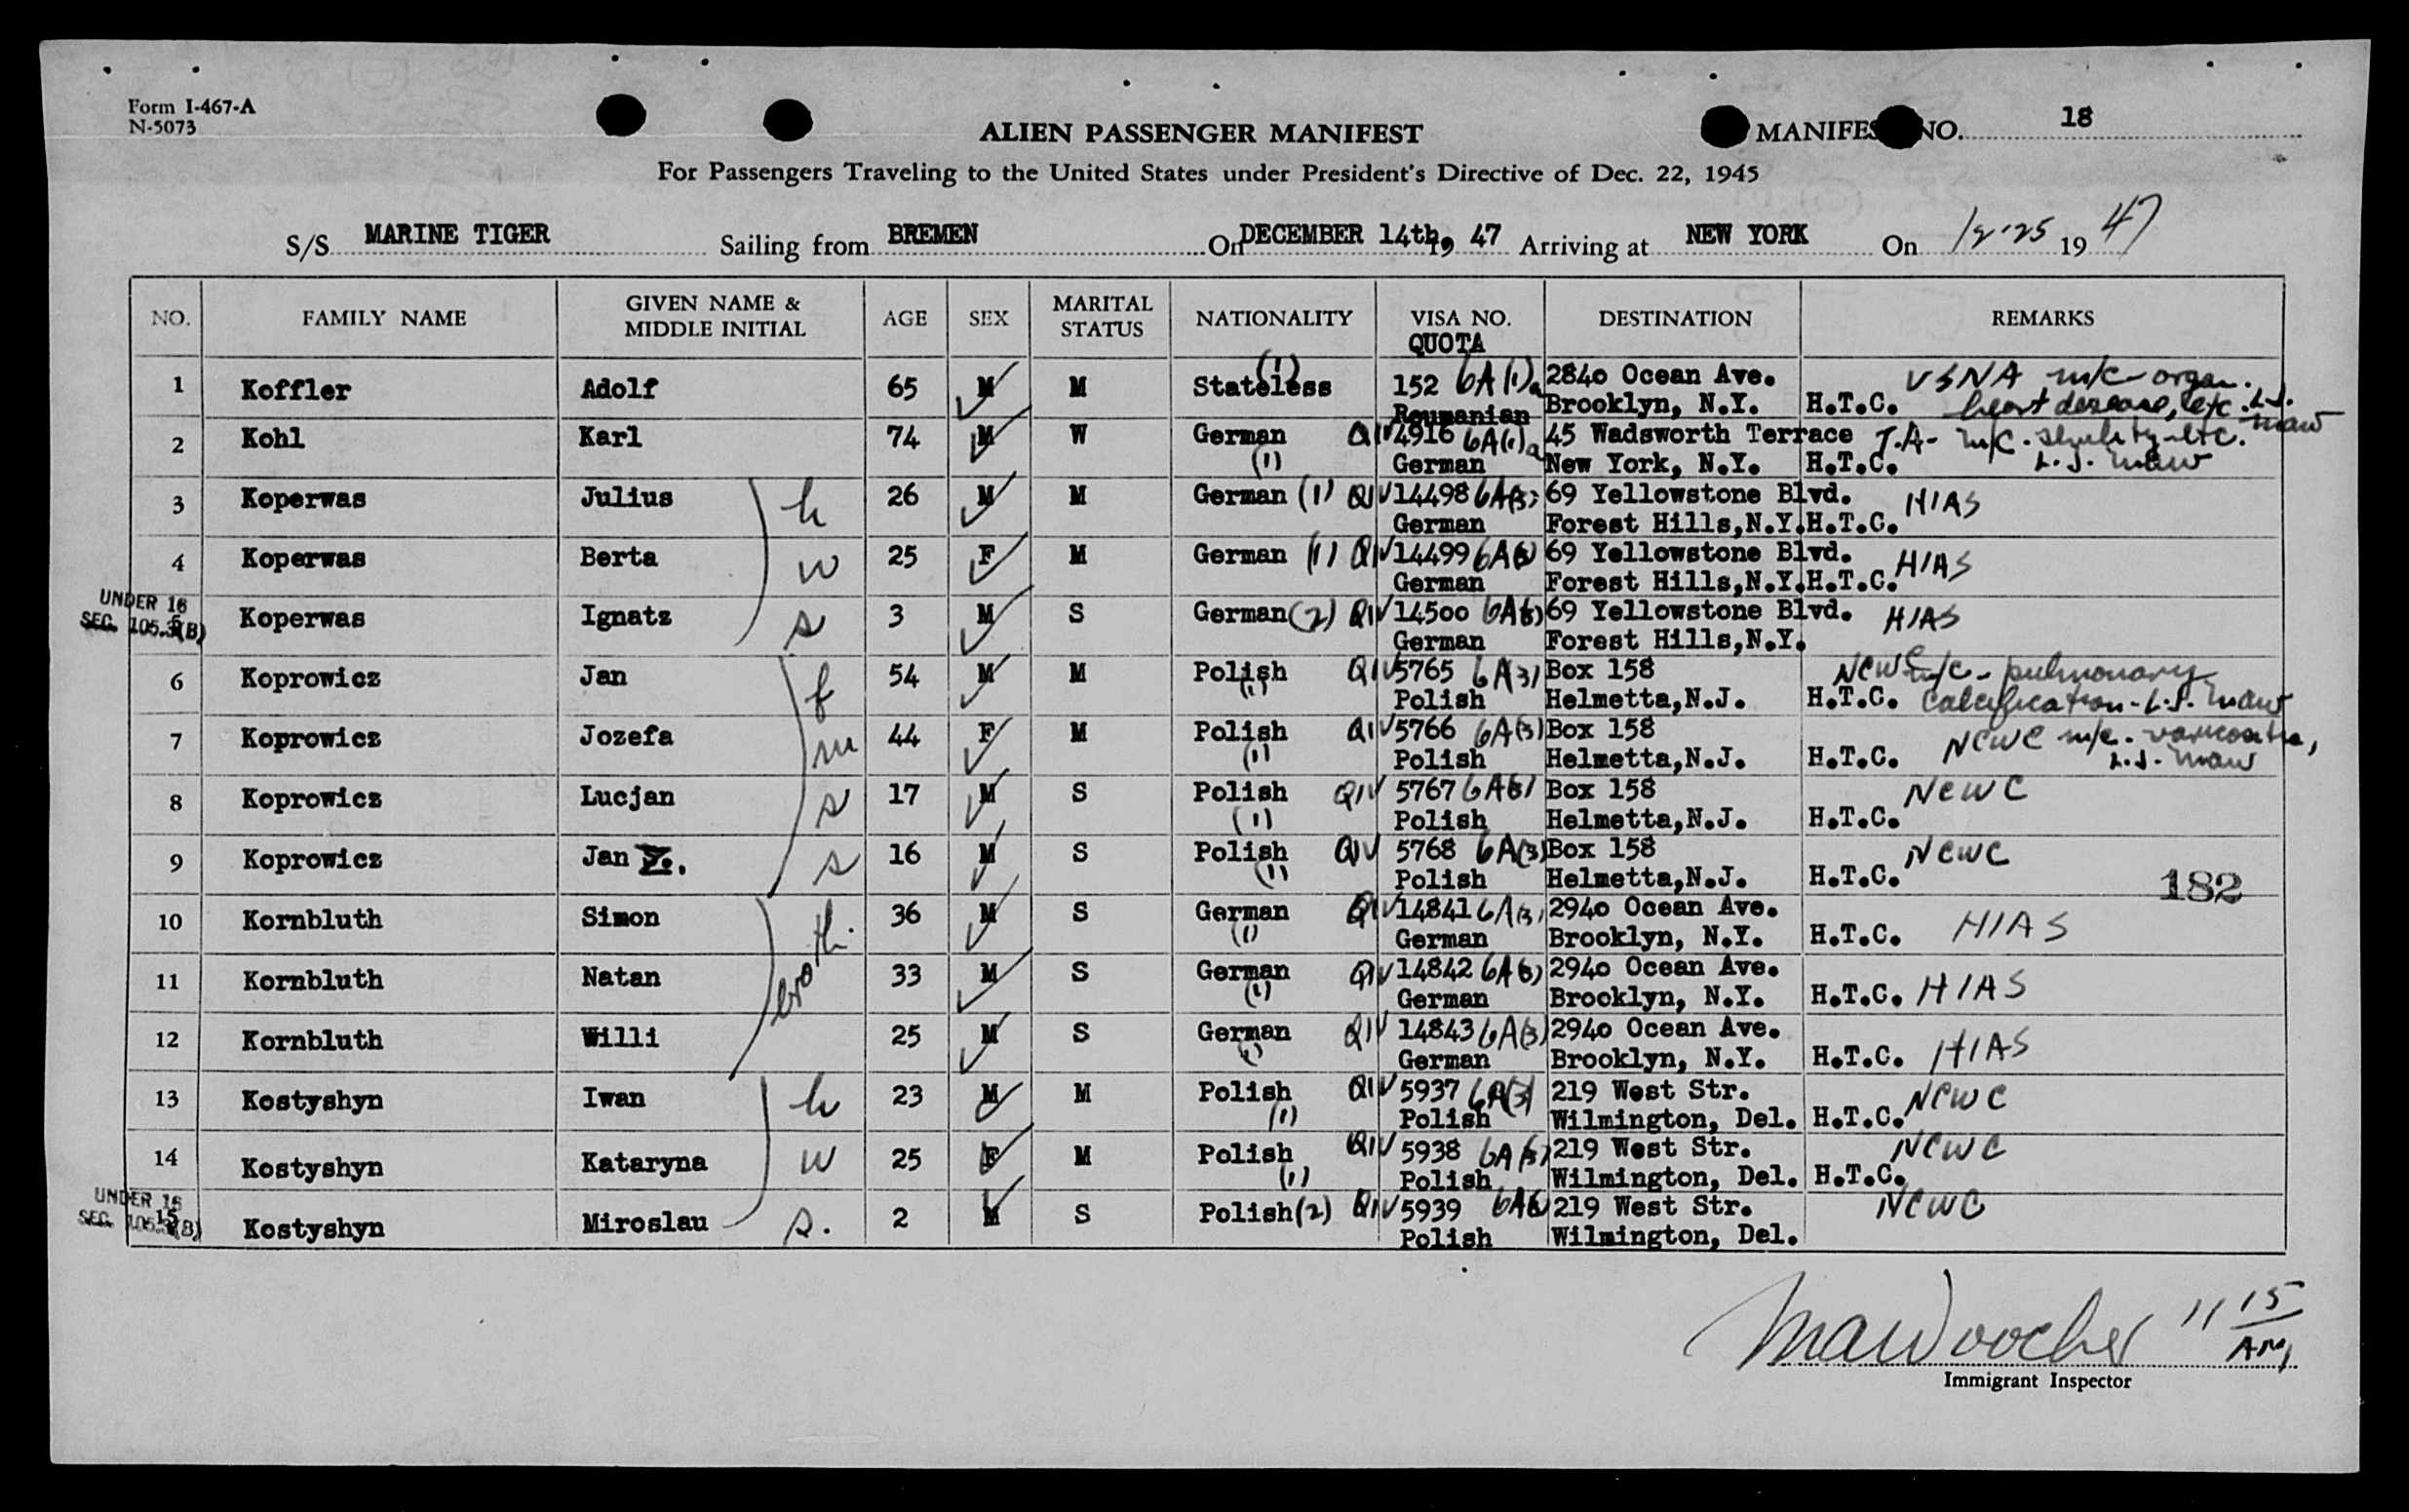 Form I-467-A
N-5073
ALIEN PASSENGER MANIFEST
MANIFES NO. 18
For Passengers Traveling to the United States under President's Directive of Dec. 22, 1945
S/S MARINE TIGER Sailing from BREMEN On DECEMBER 14th, 19 47 Arriving at NEW YORK On 12-25 19 47
NO. FAMILY NAME GIVEN NAME & MIDDLE INITIAL AGE SEX MARITAL STATUS NATIONALITY VISA NO. QUOTA DESTINATION REMARKS
1 Koffler Adolf 65 M M Stateless (1) 152 6A(1)a 2840 Ocean Ave. USNA m/c-organ.
Roumanian Brooklyn, N.Y. H.T.C. heart disease, etc. L.S. maw
2 Kohl Karl 74 M W German QIV 4916 6A(1)a 45 Wadsworth Terrace T.A- m/c. senility-etc.
(1) German New York, N.Y. H.T.C. L.S. maw
3 Koperwas Julius h 26 M M German (1) QIV 14498 6A(3) 69 Yellowstone Blvd. HIAS
German Forest Hills,N.Y. H.T.C.
4 Koperwas Berta w 25 F M German (1) QIV 14499 6A(3) 69 Yellowstone Blvd. HIAS
German Forest Hills,N.Y. H.T.C.
UNDER 16
SEC. 105.3(B)
5 Koperwas Ignatz s 3 M S German (2) QIV 14500 6A(3) 69 Yellowstone Blvd. HIAS
German Forest Hills,N.Y.
6 Koprowicz Jan f 54 M M Polish QIV 5765 6A(3) Box 158 NCWC m/c- pulmonary
(1) Polish Helmetta,N.J. H.T.C. calcification-L.S. maw
7 Koprowicz Jozefa m 44 F M Polish QIV 5766 6A(3) Box 158 NCWC m/c.
(1) Polish Helmetta,N.J. H.T.C. L.S. maw
8 Koprowicz Lucjan s 17 M S Polish QIV 5767 6A(3) Box 158 NCWC
(1) Polish Helmetta,N.J. H.T.C.
9 Koprowicz Jan s 16 M S Polish QIV 5768 6A(3) Box 158 NCWC
(1) Polish Helmetta,N.J. H.T.C.
182
10 Kornbluth Simon broth. 36 M S German QIV 14841 6A(3) 2940 Ocean Ave.
(1) German Brooklyn, N.Y. H.T.C. HIAS
11 Kornbluth Natan 33 M S German QIV 14842 6A(3) 2940 Ocean Ave.
(1) German Brooklyn, N.Y. H.T.C. HIAS
12 Kornbluth Willi 25 M S German QIV 14843 6A(3) 2940 Ocean Ave.
(1) German Brooklyn, N.Y. H.T.C. HIAS
13 Kostyshyn Iwan h 23 M M Polish QIV 5937 6A(3) 219 West Str. NCWC
(1) Polish Wilmington, Del. H.T.C.
14 Kostyshyn Kataryna w 25 F M Polish QIV 5938 6A(3) 219 West Str. NCWC
(1) Polish Wilmington, Del. H.T.C.
UNDER 16
SEC. 105.3(B)
15 Kostyshyn Miroslau s. 2 M S Polish (2) QIV 5939 6A(3) 219 West Str. NCWC
Polish Wilmington, Del.
11 15 AM
Immigrant Inspector